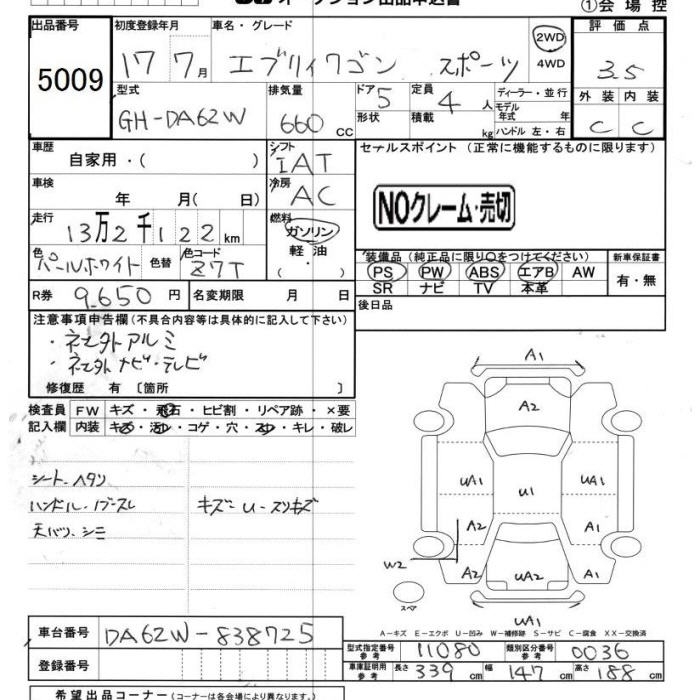 ①会 場 控
出品番号
5009
初度登録年月
17 7月
車名・グレード
エブリィワゴン スポーツ
2WD
4WD
評 価 点
3.5
外 装 内 装
C C
型式
GH-DA62W
排気量
660 CC
ドア 5
形状
定員 4 人
積載 kg
ディーラー・並行
モデル年式 年
ハンドル 左・右
車歴
自家用・( )
シフト
IAT
セールスポイント (正常に機能するものに限ります)
NOクレーム・売切
車検
年 月( 日)
冷房
AC
走行
13万2千122km
燃料
ガソリン
軽 油
( ・ )
色
パールホワイト
色替
色コード
Z7T
装備品(純正品に限り○をつけてください)
PS PW ABS エアB AW
SR ナビ TV 本革
新車保証書
有・無
R券 9,650 円
名変期限 月 日
後日品
注意事項申告欄(不具合内容等は具体的に記入して下さい)
・社外アルミ
・社外ナビ・テレビ
修復歴 有 〔箇所 〕
検査員 FW キズ・飛石・ヒビ割・リペア跡・×要
記入欄 内装 キズ・汚レ・コゲ・穴・スレ・キレ・破レ
シート、ヘタリ
ハンドル、ノブースレ
キズーU-スリキズ
天バリ、シミ
A1
A2
UA1
U1
UA1
A2
A1
W2
A2
UA2
A1
スペア
UA1
A-キズ E-エクボ U-凹み W-補修跡 S-サビ C-腐食 XX-交換済
車台番号 DA62W-838725
登録番号
型式指定番号 参考 11080
類別区分番号 参考 0036
車庫証明用 参考 長さ 339cm 幅 147cm 高さ 188cm
希望出品コーナー(コーナーは各会場により異なります。)